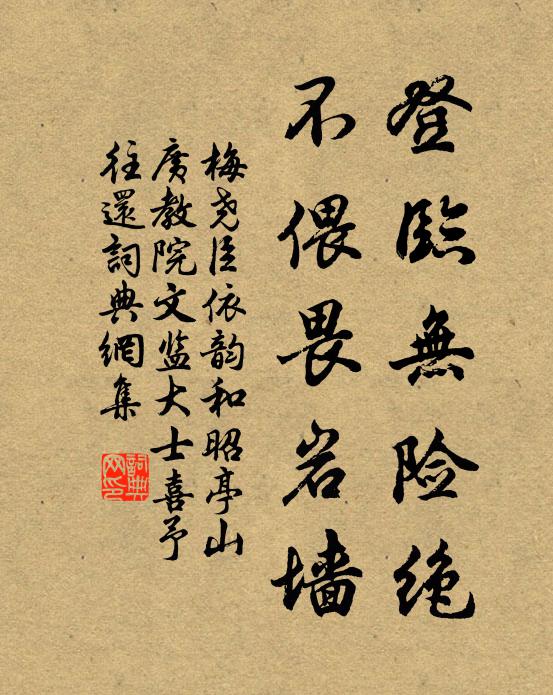 登臨無险绝
不偎畏岩墙
梅尧臣依韵和昭亭山
广教院文监大士喜予
往還詞典網集
詞典
网印